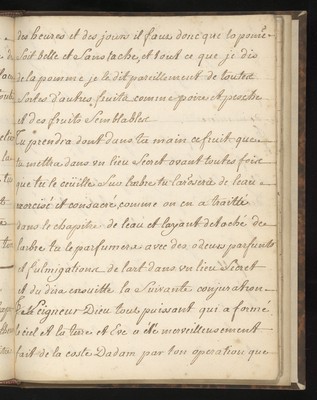 des heures et des jours il faus donc que la pome
Soit belle et Sans tache, et tout ce que je dis
de la pomme je le dit pareillement de toutes
Sortes d'autres fruits, comme poire et pesche
et des fruits Semblables.
Tu prendra dont dans ta main ce fruit que
tu mettra dans un lieu Secret avant toutes fois
que tu le ceüille Sur larbre tu larosera de leau
exorcisé et consacré comme on en a traitté
dans le chapitre de leau et layant detaché de
larbre tu le parfumera avec des odeurs parfums
et fulmigations de lart dans vn lieu Secret
et du dira ensuitte la Suivante conjuration
Seigneur Dieu tous puissant qui a formé
le ciel et la terre et Eve a été merveilleusement
fait de la coste Dadam par ton operation que